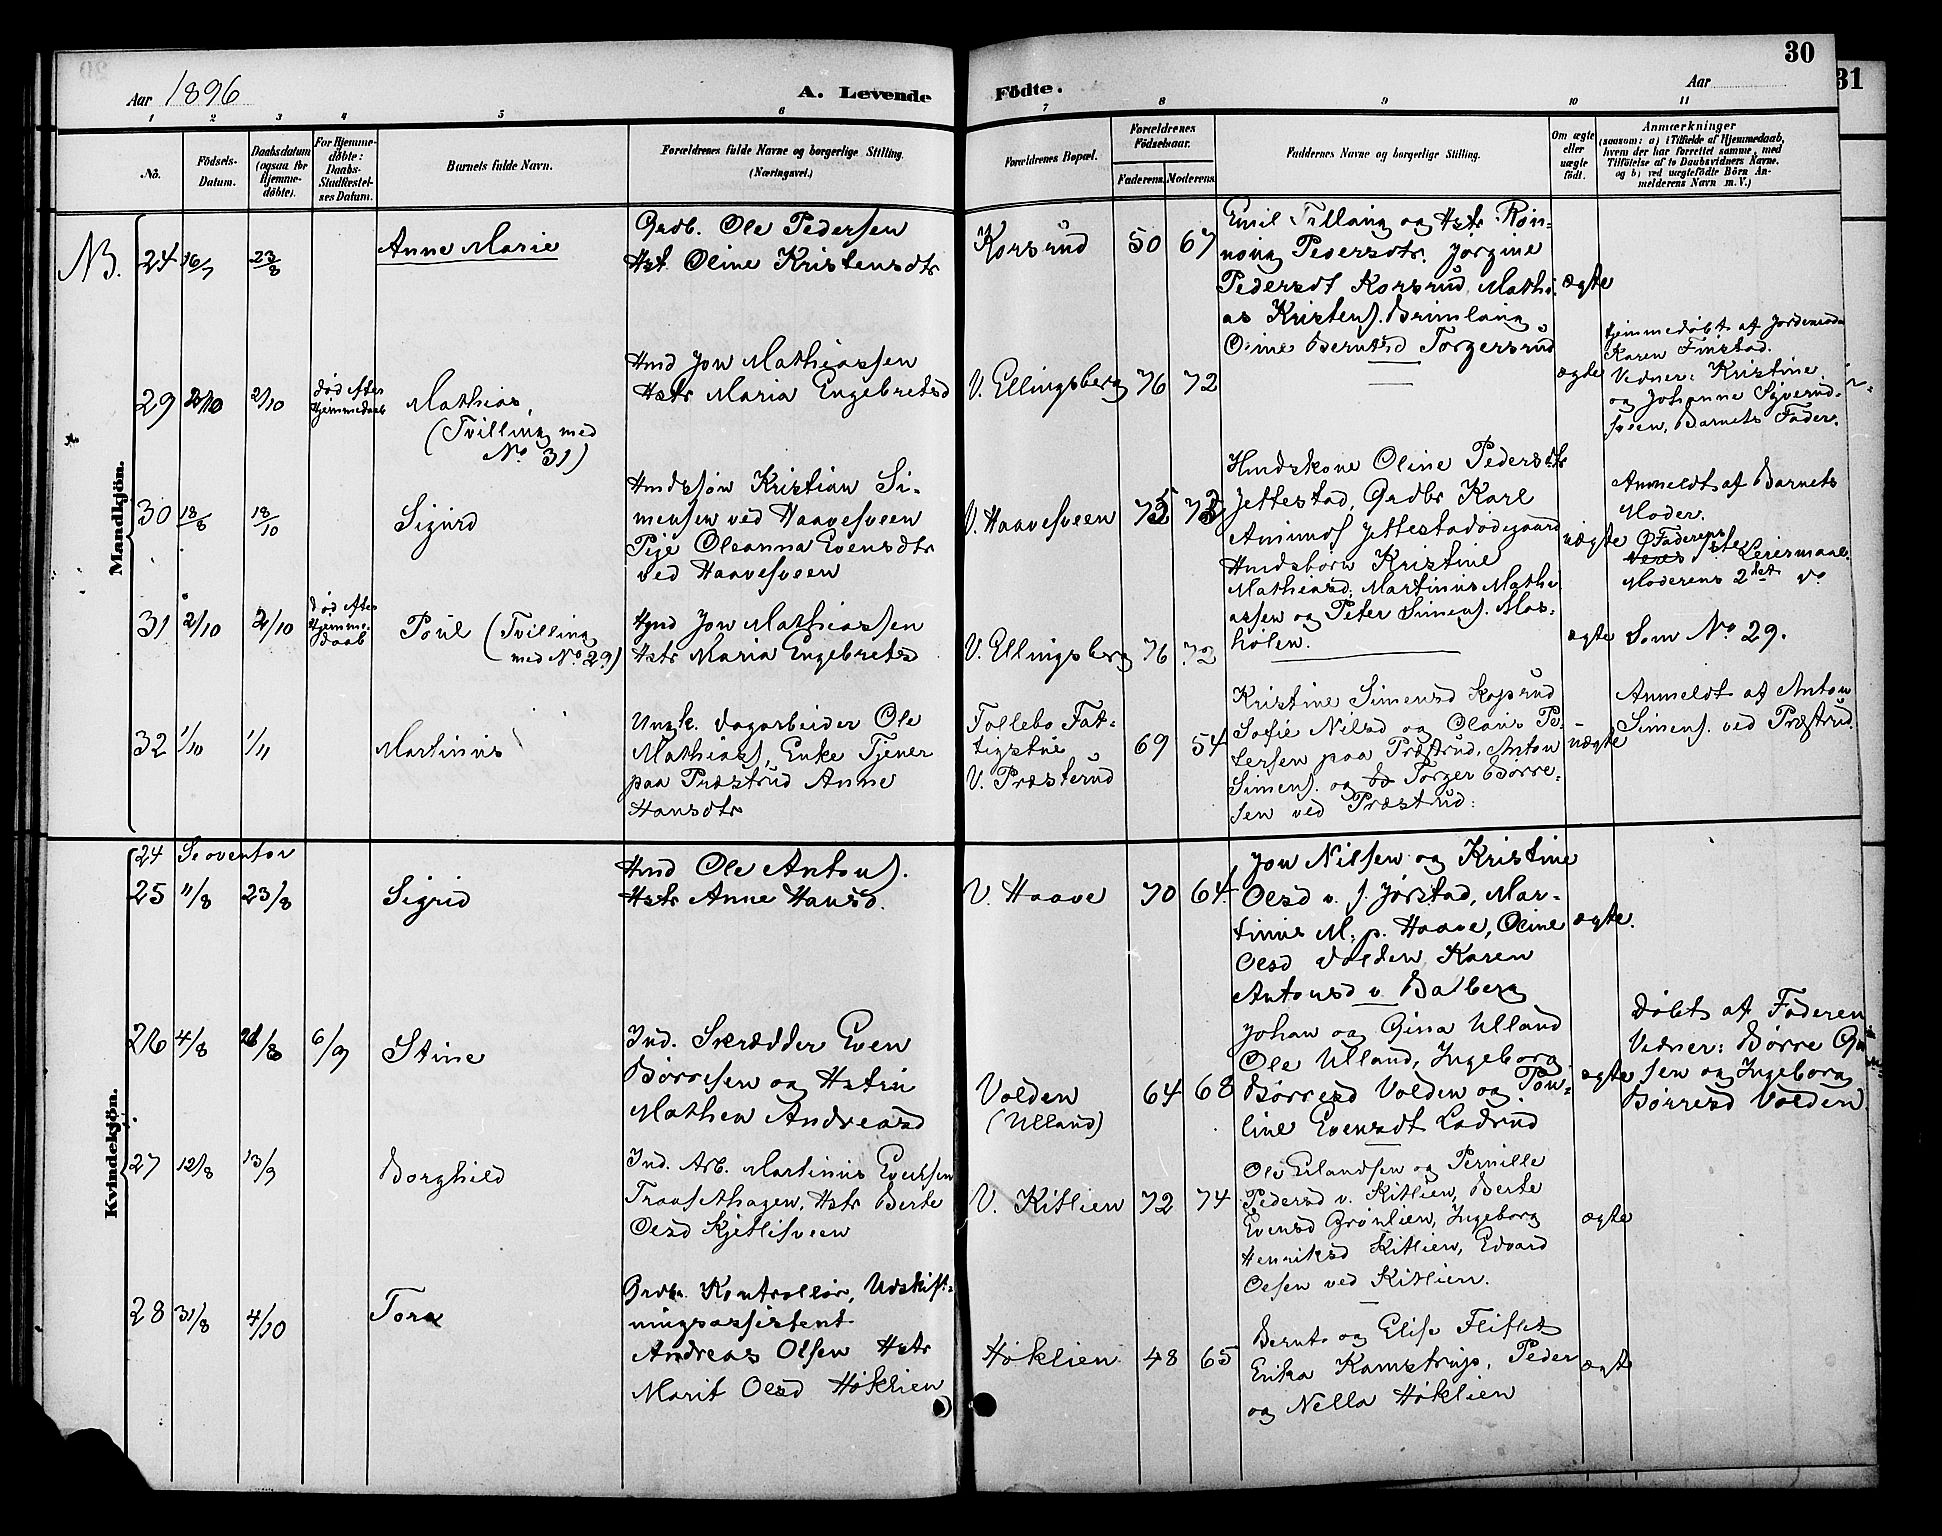 30
31
Aar 1896
A. Levende
Födte.
Aar
1 2 3 4 5 6 7 8 9 10 11
No.
Födsels-
Datum.
Daabsdatum
(ogsaa for
Hjemme-
döbte).
For Hjemme-
döbte:
Daabs-
Stadfæstel-
ses Datum.
Barnets fulde Navn.
Forældrenes fulde Navne og borgerlige Stilling.
(Næringsvei.)
Forældrenes Bopæl.
Forældrenes
Födselsaar.
Faderens. Moderens.
Faddernes Navne og borgerlige Stilling.
Om ægte
eller
uægte
födt.
Anmærkninger
(saasom: a) i Tilfælde af Hjemmedaab,
hvem der har forrettet samme, med
Tilföielse af to Daabsvidners Navne.
og b) ved uægtefödte Börn An-
melderens Navn m. V.)
Mandkjön.
NB. 24 16/7 23/8
Anne Marie
Grdb. Ole Pedersen
Hst. Oline Kristensdtr
Korsrud
50 67
Emil Tillang og Hstr. Røn-
noug Pedersdtr. Jørgine
Pedersdt Korsrud, Mathi-
as Kristens. Brimlang
Oline Berntsd Torgersrud
ægte
29 2/10 2/10
død efter
Hjemmedaab
Mathias,
(Tvilling med
No 31)
Hmd Jon Mathiassen
Hstr Maria Engebretsd
V. Ellingsberg
76 72
ægte
Hjemmedøbt af Jordemoder
Karen Finstad.
Vidner: Kristine
og Johanne Syverud-
sveen, Barnets Fader.
30 18/8 18/10
Sigurd
Hmdssøn Kristian Si-
mensen ved Haavesveen
Pige Oleanna Evensdtr
ved Haavesveen
V. Haavesveen
75 73
Hmdskone Oline Pedersdtr
Jettestad, Grdbr Karl
Amunds Jettestadødegaard
Hmdsbørn Kristine
Mathiasd, Martinus Mathi-
assen og Peter Simens. Mos-
holen.
uægte
Anmeldt af Barnets
Moder.
Faderens 1ste Leiermaal.
Moderens 2det do
31 2/10 2/10
død efter
Hjemme-
daab
Poul (Tvilling
med No 29)
Hmd Jon Mathiassen
Hstr Maria Engebretsd
V. Ellingsberg
76 72
ægte
Som No 29.
32 1/10 1/11
Martinus
Ungk. Dagarbeider Ole
Mathias., Enke Tjener
paa Præstrud Anne
Hansdtr
Follebo Fat-
tigstue
V. Præsterud
69 54
Kristine Simensd Koprud
Sofie Nilsd og Olaus Pe-
tersen paa Præstrud, Anton
Simens. og Torger Børre-
sen ved Præstrud.
uægte
Anmeldt af Anton
Simens. ved Præstrud.
Kvindekjön.
24 Se ovenfor
25 11/8 23/8
Sigrid
Hmd Ole Antons.
Hstr Anne Hansd.
V. Haave
70 64
Jon Nilsen og Kristine
Olsd v. s. Jørstad, Mar-
tinus M. p. Haave, Oline
Olsd Volden, Karen
Antonsd v. Balberg
ægte.
26 4/8 28/8 6/9
Stine
Ind. Skrædder Even
Børresen og Hstru
Mathea Andreasd
Volden
(Ulland)
64 68
Johan og Gina Ulland
Ole Ulland, Ingeborg
Børresd Volden og Pau-
line Evensdt Ladrud
ægte
Døbt af Faderen
Vidner: Børre
sen og Ingeborg
Børresd Volden
27 12/8 13/9
Borghild
Ind. Arb. Martinus Evensen
Traasethagen, Hstr Berte
Olsd Kjetlisveen
V. Kitlien
72 74
Ole Erlandsen og Pernille
Pedersd v. Kitlien, Berte
Evensd Grønlien, Ingeborg
Henriksd Kitlien, Edvard
Olsen ved Kitlien.
ægte
28 31/8 4/10
Tora
Grdbr. Kontrollør, Udskift-
ningsassistent
Andreas Olsen Hstr
Marit Olsd Høklien
Høklien
48 65
Bernt og Elise Fliflet
Erika Kamstrup, Peder
og Nella Høklien
ægte